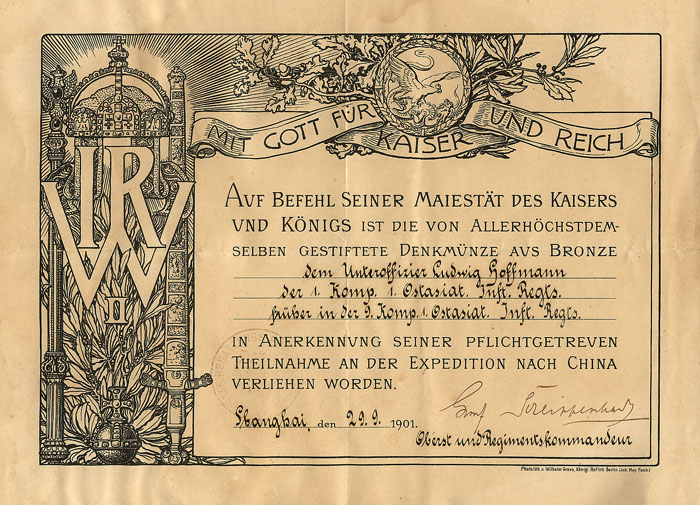 MIT GOTT FÜR KAISER UND REICH
IRW
II
AVF BEFEHL SEINER MAIESTÄT DES KAISERS
VND KÖNIGS IST DIE VON ALLERHÖCHSTDEM-
SELBEN GESTIFTETE DENKMÜNZE AVS BRONZE
dem Unteroffizier Ludwig Hoffmann
der 1. Komp. 1. Ostasiat. Inft. Regts.
früher in der 9. Komp. 1. Ostasiat. Inft. Regts.
IN ANERKENNVNG SEINER PFLICHTGETREVEN
THEILNAHME AN DER EXPEDITION NACH CHINA
VERLIEHEN WORDEN.
Shanghai, den 29.9. 1901.
Oberst und Regimentskommandeur
Photolith. v. Wilhelm Greve, Königl. Hoflith. Berlin